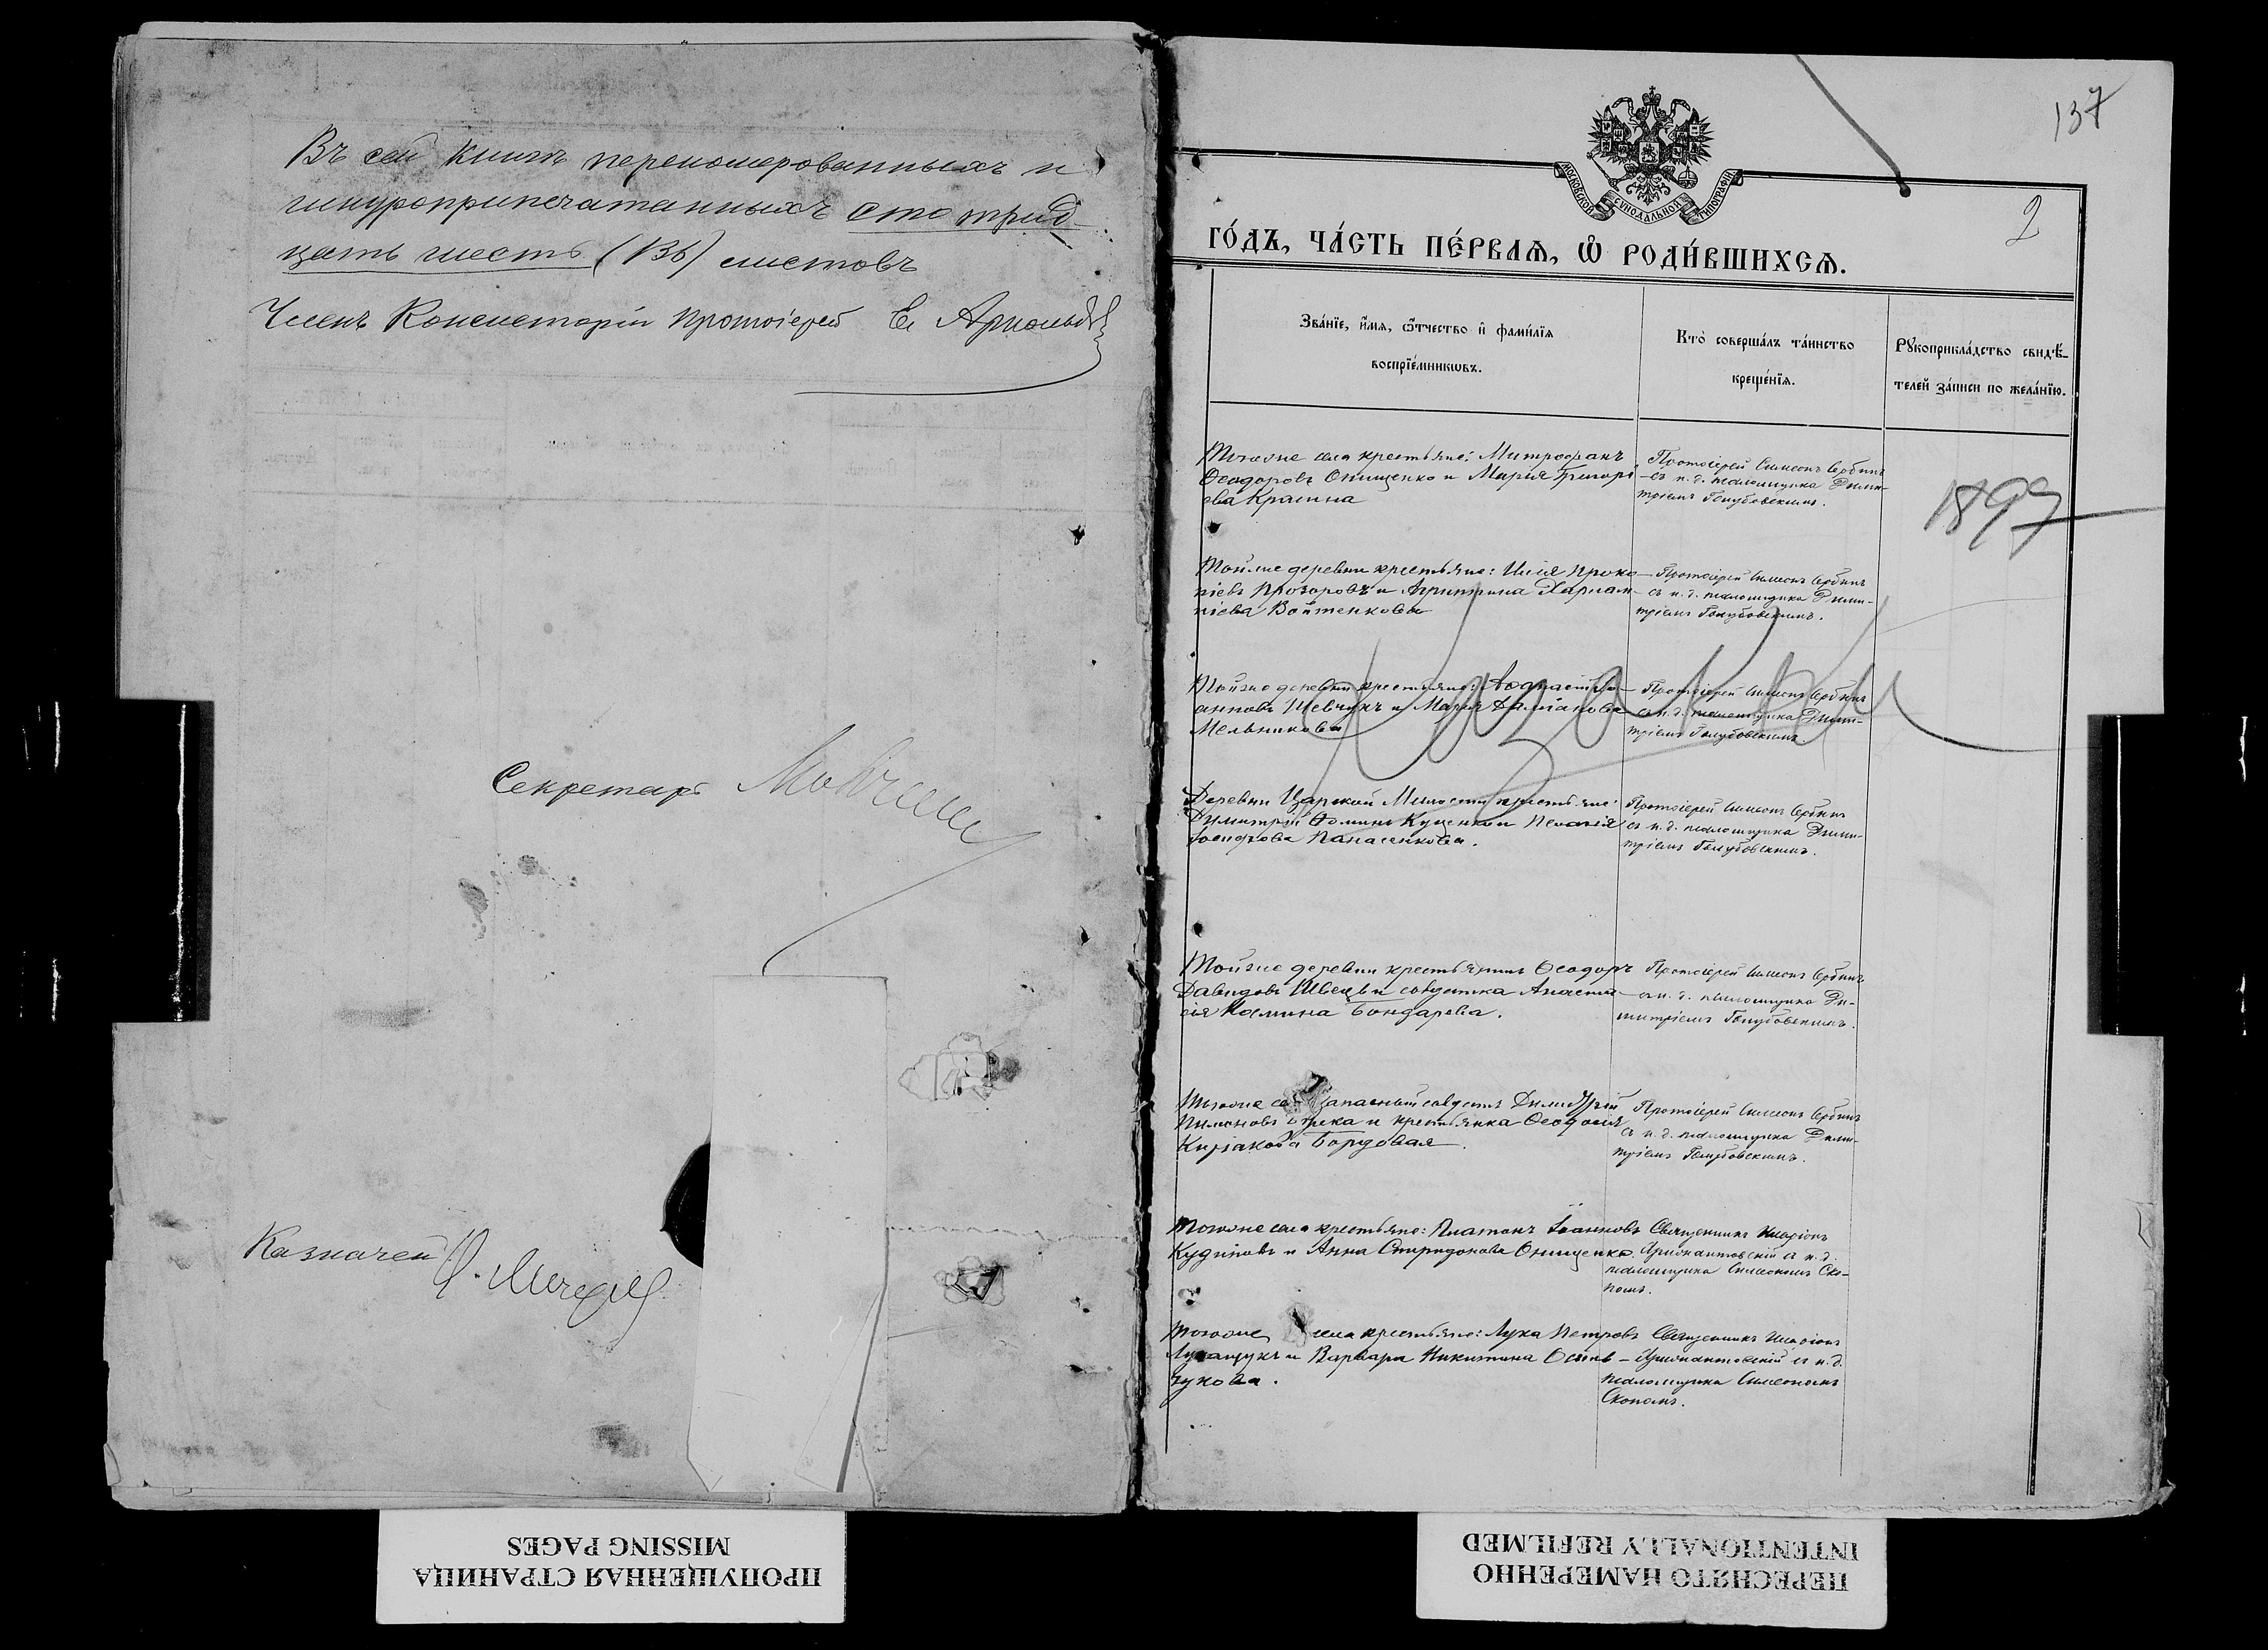 Въ сей книгѣ перенумерованныхъ и
шнуроприпечатанныхъ сто трид
цать шесть (136) листовъ
Членъ Консисторіи Протоіерей Е. Арнольдъ
Секретарь
Казначей
ПРОПУЩЕННАЯ СТРАНИЦА
MISSING PAGES
137
МОСКОВСКОЙ СѴНОДАЛЬНОЙ ТИПОГРАФІИ
2
ГО́ДЪ, ЧА́СТЬ ПЕ́РВАѦ, Ѽ РОДИ́ВШИХСѦ.
Зва́нїе, и҆́мѧ, ѻ҆́тчество и҆ фами́лїѧ
воспрїе́мникѡвъ.
Кто̀ соверша́лъ та́инство
креще́нїѧ.
Рꙋкоприкла́дство свидѣ́-
телей за́писи по жела́нїю.
Тогоже села крестьяне: Митрофанъ
Ѳеодоровъ Онищенко и Марія Григорі
ева Красина
Протоіерей Симеонъ Сербинъ
съ и. д. псаломщика Дими-
тріемъ Голубовскимъ.
1899
Тойже деревни крестьяне: Илія Проко
піевъ Прозоровъ и Агриппина Харлам
піева Войтенкова
Протоіерей Симеонъ Сербинъ
съ и. д. псаломщика Дими-
тріемъ Голубовскимъ.
Тойже деревни крестьяне: Іо-
анновъ Шевчукъ и Марія Даміанова
Мельникова
Протоіерей Симеонъ Сербинъ
съ и. д. псаломщика Дими-
тріемъ Голубовскимъ.
Деревни Царской Милости крестьяне:
Димитрій Ѳоминъ Куценко и Пелагія
Іосифова Панасенкова.
Протоіерей Симеонъ Сербинъ
съ и. д. псаломщика Дими-
тріемъ Голубовскимъ.
Тойже деревни крестьянинъ Ѳеодоръ
Давидовъ Швецъ и солдатка Анаста
сія Космина Бондарева.
Протоіерей Симеонъ Сербинъ
съ и. д. псаломщика Ди-
митріемъ Голубовскимъ.
Тогоже запасный солдатъ Димитрій
Пимоновъ и крестьянка Ѳеодосія
Киріакова Бордовая.
Протоіерей Симеонъ Сербинъ
съ и. д. псаломщика Дими-
тріемъ Голубовскимъ.
Тогоже села крестьяне: Платонъ Іоанновъ
Кудиновъ и Анна Спиридонова Онищенко.
Священникъ Иларіонъ
съ и. д.
псаломщика Симеономъ Ско-
помъ.
Тогоже села крестьяне: Лука Петровъ
Лукащукъ и Варвара Никитина
чукова.
Священникъ Иларіонъ
съ и. д.
псаломщика Симеономъ
Скопомъ.
ПЕРЕСНЯТО НАМЕРЕННО
INTENTIONALLY REFILMED